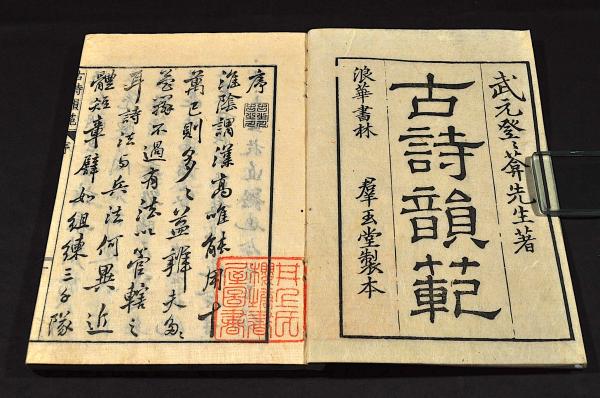 武元登〻菴先生著
古詩韻範
浪華書林 羣玉堂製本
序
淮陰謂漢高唯能用十
萬已則多〻益辨夫多〻
益辨不過有法以管轄之
耳詩法与兵法何異近
體短章譬如組練三千隊
古詩韻範 序
井上氏